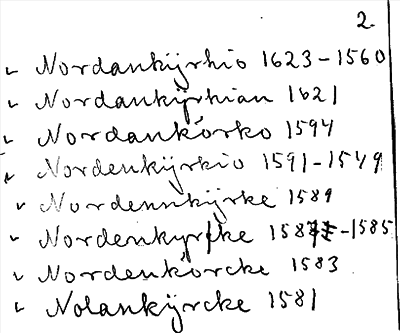 2.
✓ Nordankÿrkio 1623-1560
✓ Nordankÿrkian 1621
✓ Nordankörko 1594
✓ Nordenkÿrkio 1591-1549
✓ Nordennkÿrke 1589
✓ Nordenkyrke -1585
✓ Nordenkörcke 1583
✓ Nolankÿrcke 1581